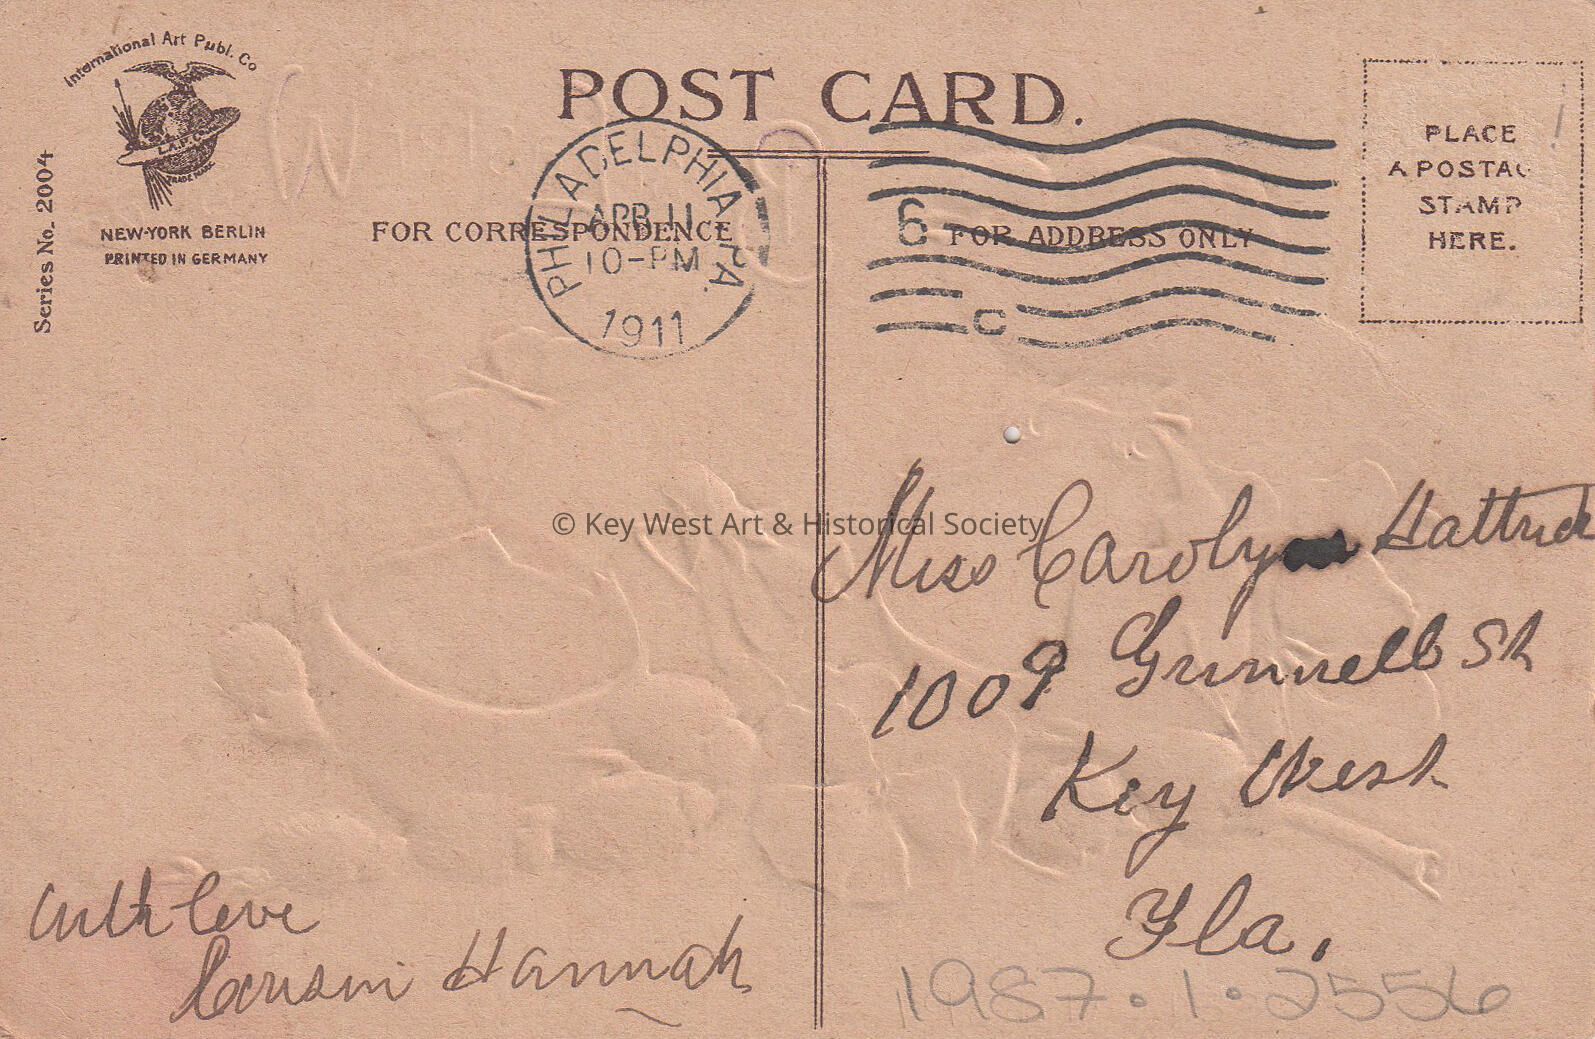 International Art Publ. Co
I.A.P.Co.
TRADE MARK
NEW-YORK BERLIN
PRINTED IN GERMANY
Series No. 2004
POST CARD.
FOR CORRESPONDENCE
FOR ADDRESS ONLY
PHILADELPHIA, PA.
APR 11
10-PM
1911
6
C
PLACE
A POSTAG
STAMP
HERE.
© Key West Art & Historical Society
Miss Carolyn Hattrick
1009 Grinnell St
Key West
Fla.
with love
Cousin Hannah
1987.1.2556